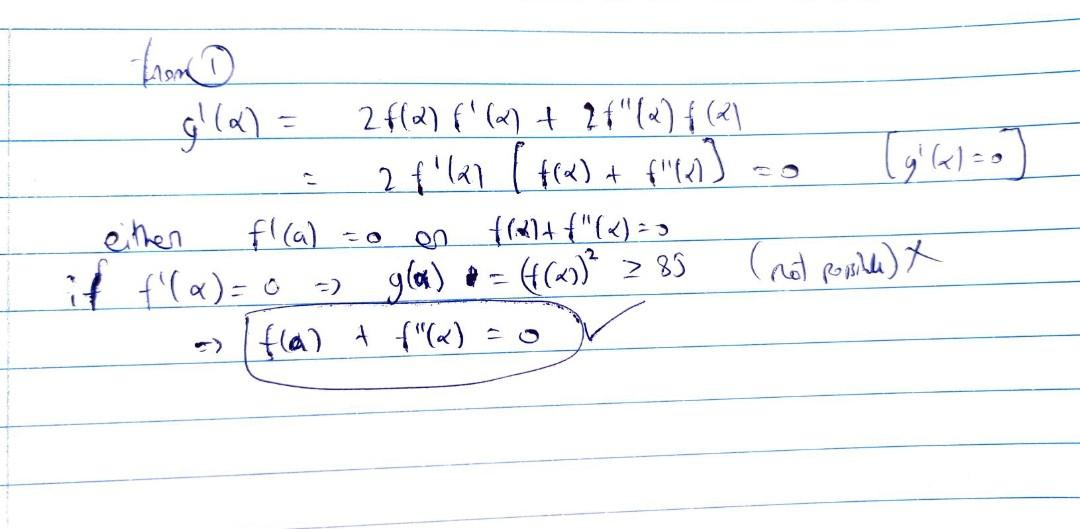 from ①
g'(α) = 2f(α) f'(α) + 2f"(α) f(α)
= 2 f'(α) [ f(α) + f"(α) ] = 0 [g'(α) = 0]
either f'(a) = 0 or f(α) + f"(α) = 0
if f'(α) = 0 ⇒ g(α) = (f(α))² ≥ 85 (not possible) ×
⇒ f(a) + f"(α) = 0 ✓